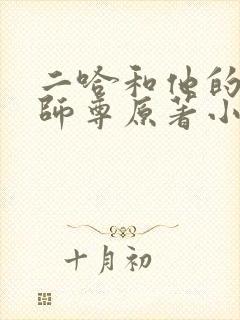 二哈和他的
師尊原著小
十月初